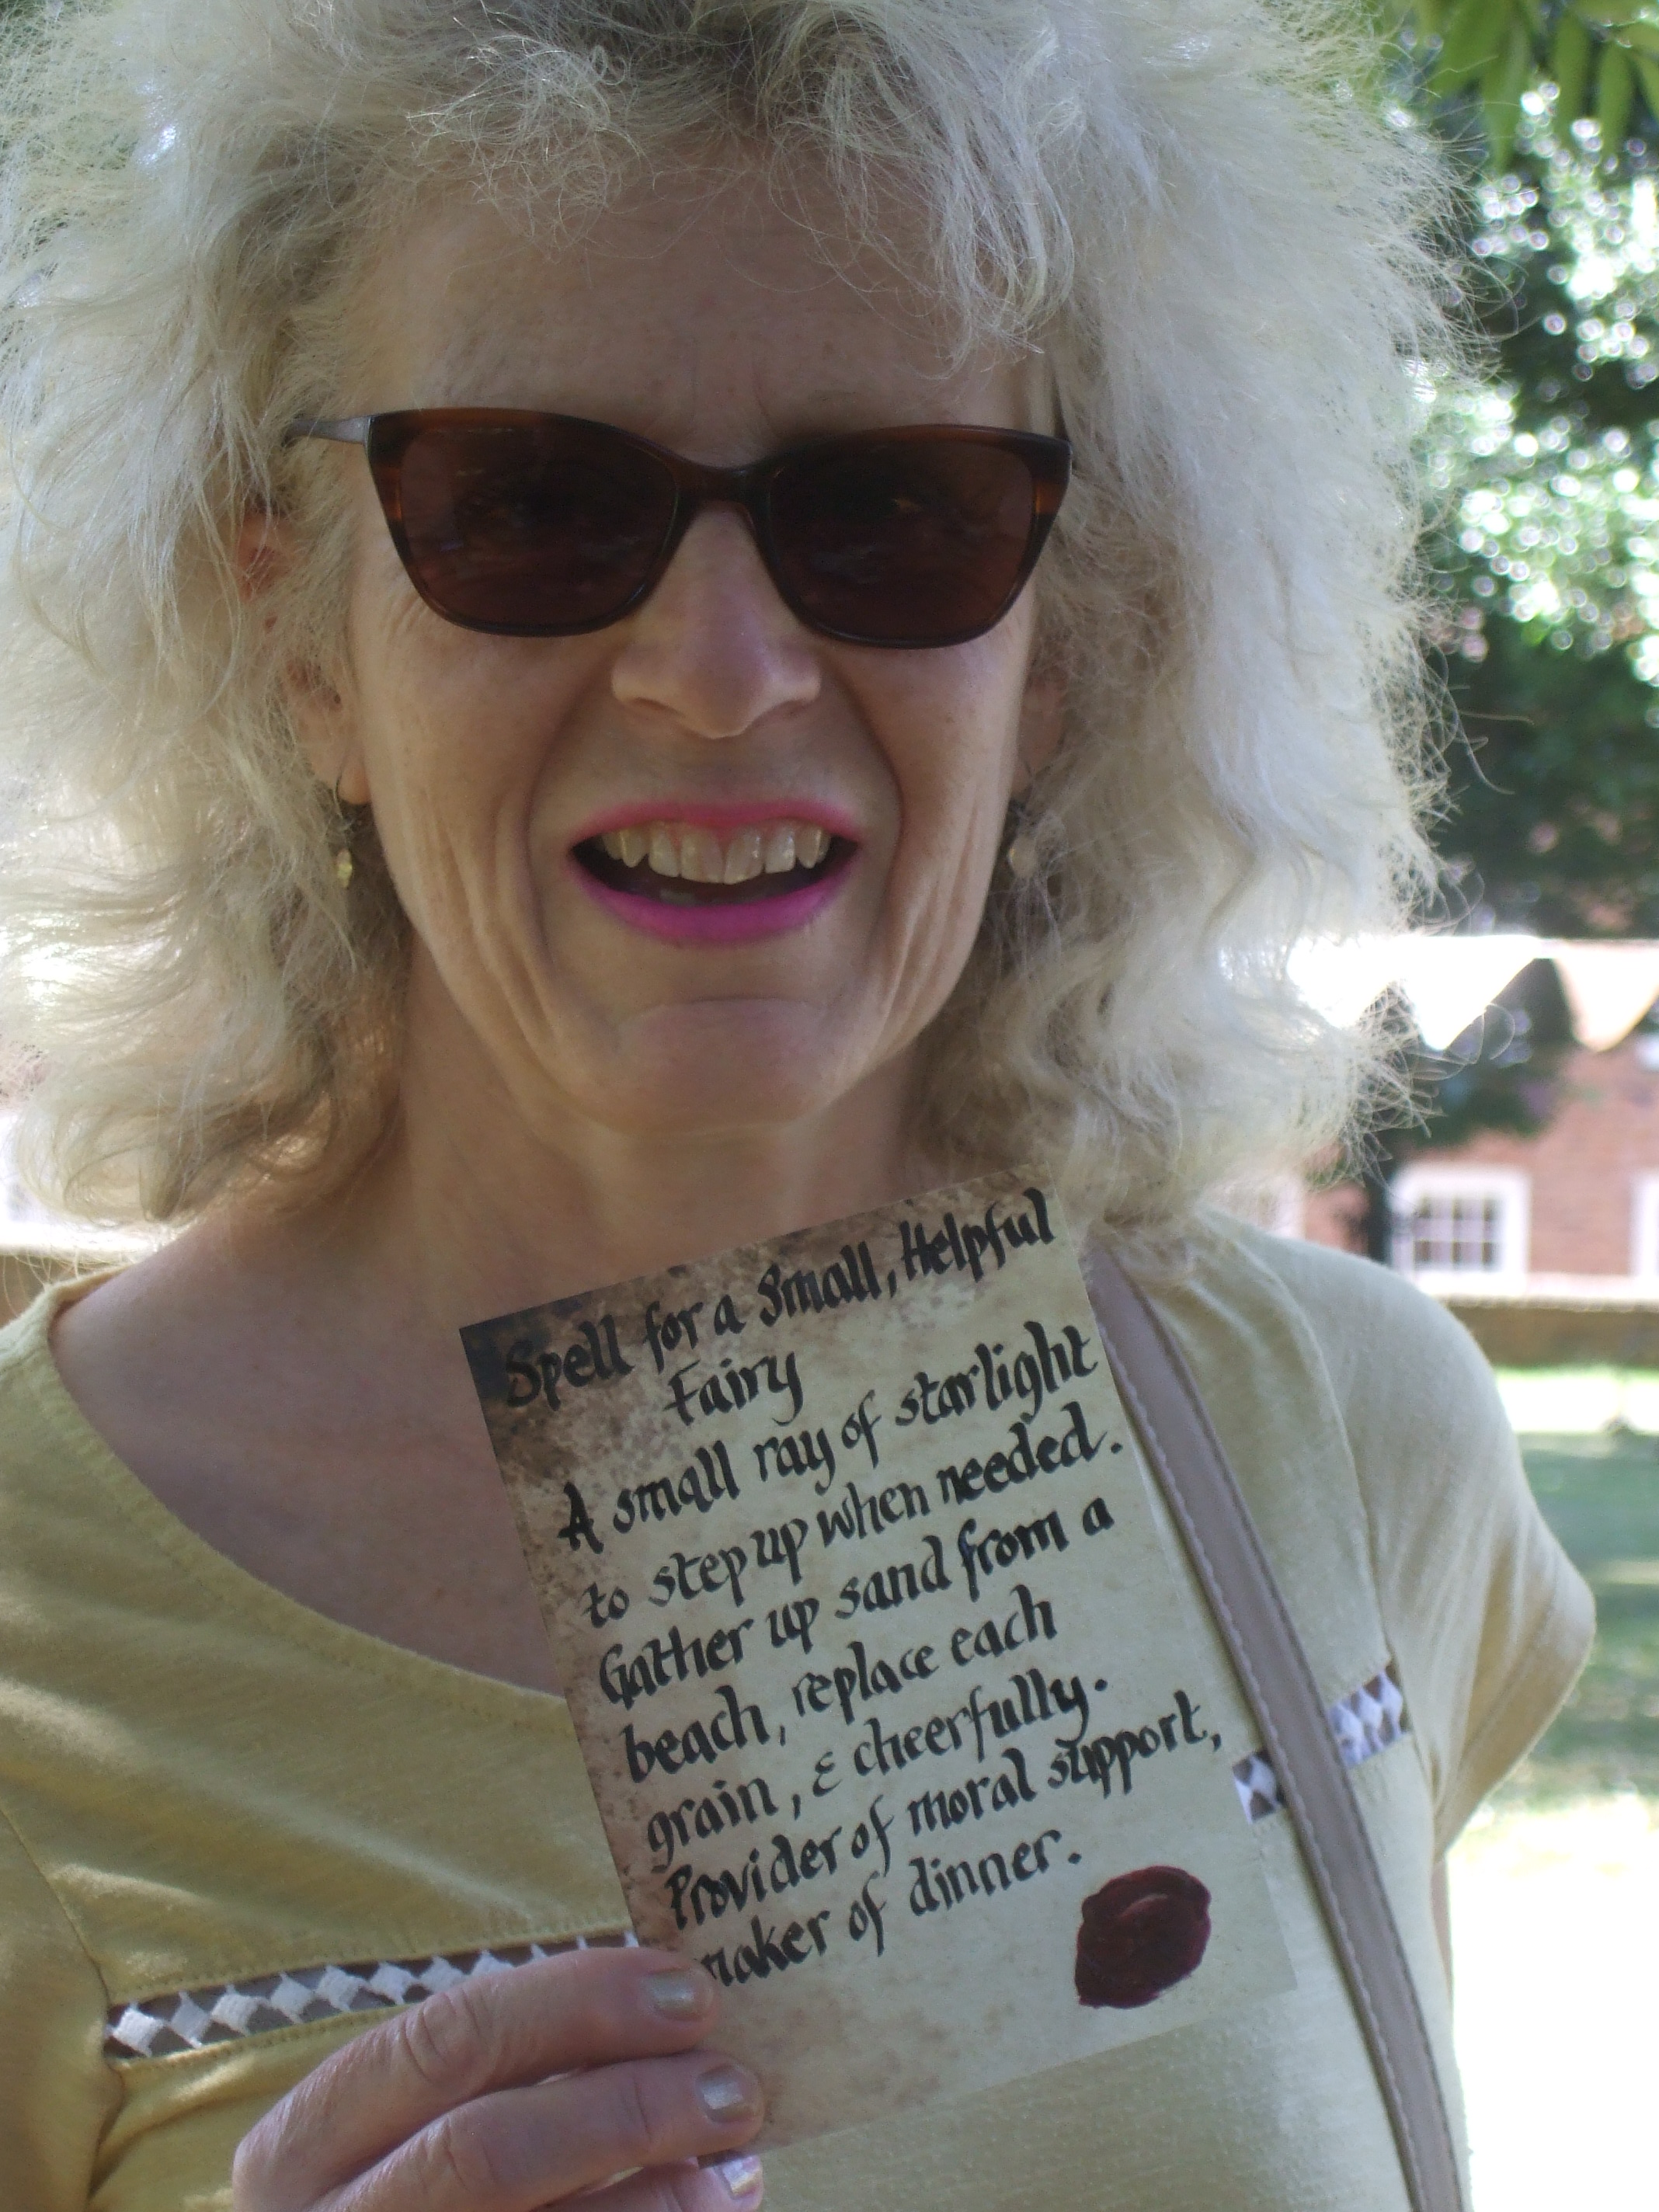 Spell for a Small, Helpful
Fairy
A small ray of starlight
to step up when needed.
Gather up sand from a
beach, replace each
grain, & cheerfully.
Provider of moral support,
maker of dinner.